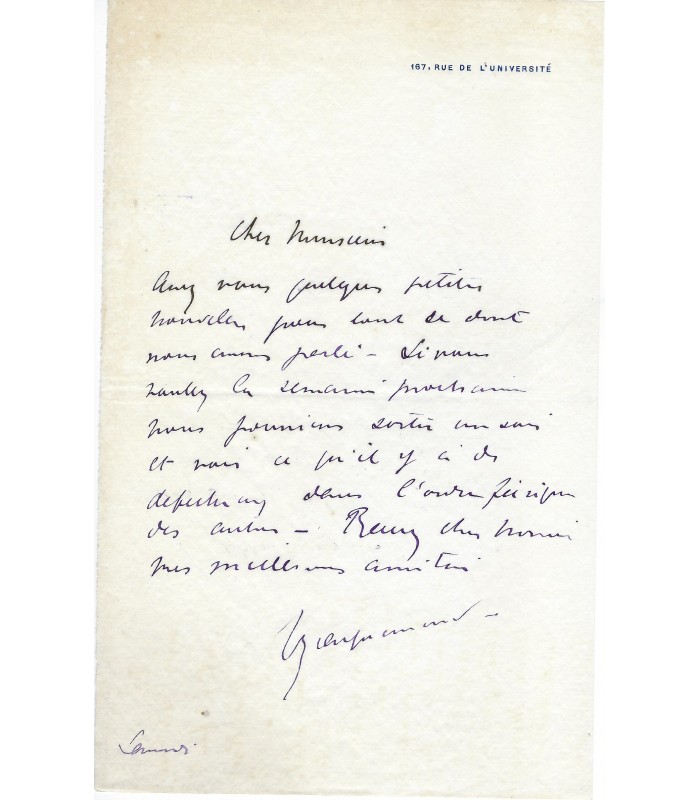 167, RUE DE L'UNIVERSITÉ
Cher Monsieur
Avez vous quelques petites
nouvelles pour tout ce dont
nous avons parlé – Si vous
voulez la semaine prochaine
nous pourrions sortir un soir
et voir ce qu'il y a de
defectueux dans l'ordre
des autres – Recevez cher
mes meilleures amitiés
Samedi